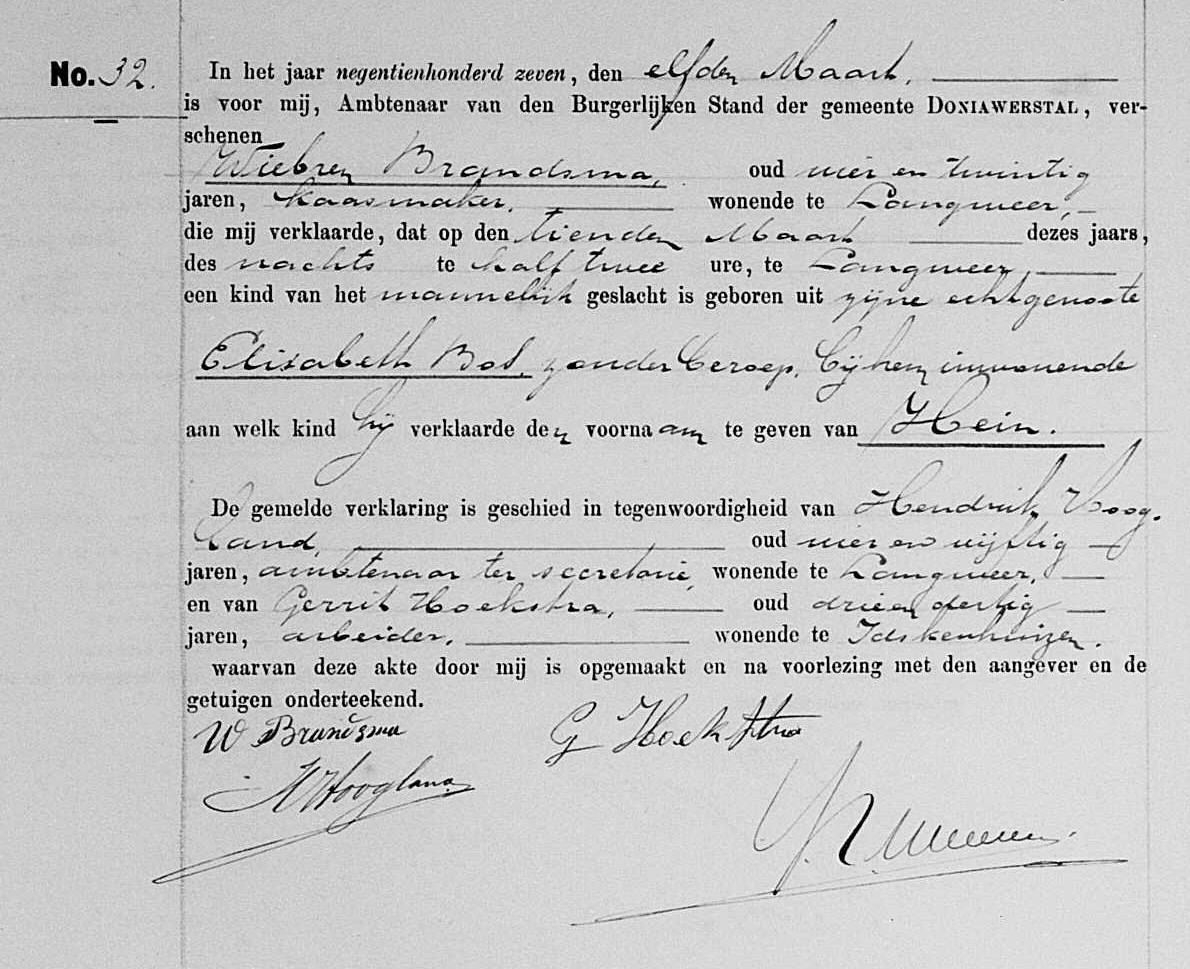 No. 32.
In het jaar negentienhonderd zeven, den elfden Maart,
is voor mij, Ambtenaar van den Burgerlijken Stand der gemeente DONIAWERSTAL, ver-
schenen
Wiebren Brandsma, oud vier en twintig
jaren, kaasmaker, wonende te Langweer,
die mij verklaarde, dat op den tienden Maart dezes jaars,
des nachts te half twee ure, te Langweer,
een kind van het mannelijk geslacht is geboren uit zijne echtgenoote
Elisabeth Bos, zonder beroep, bij hem inwonende
aan welk kind hij verklaarde den voornaam te geven van Hein.
De gemelde verklaring is geschied in tegenwoordigheid van Hendrik Hoog-
land, oud vier en vijftig
jaren, ambtenaar ter secretarie, wonende te Langweer,
en van Gerrit Hoekstra, oud drie en dertig
jaren, arbeider, wonende te Idskenhuizen.
waarvan deze akte door mij is opgemaakt en na voorlezing met den aangever en de
getuigen onderteekend.
W Brandsma G Hoekstra
H Hoogland